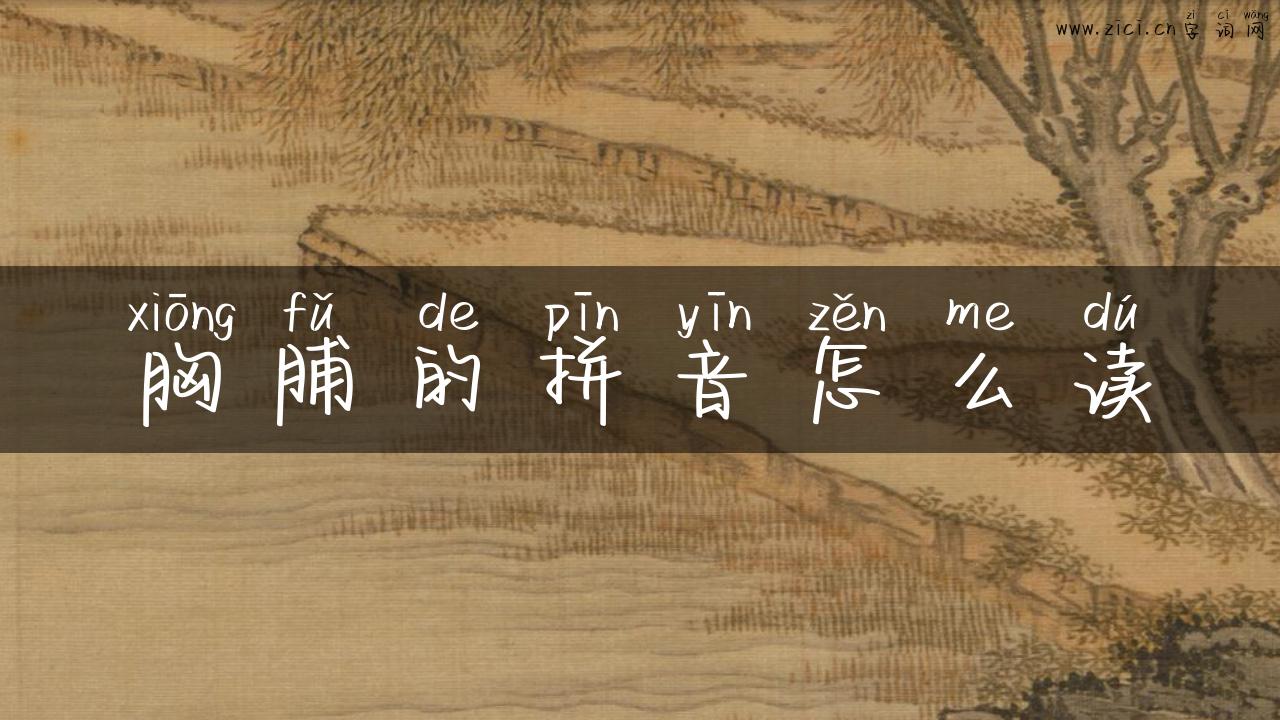 zì cí wǎng
www.zici.cn字词网
xiōng fǔ de pīn yīn zěn me dú
胸脯的拼音怎么读